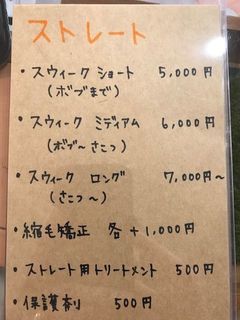 ストレート
・スウィーク ショート 5,000円
(ボブまで)
・スウィーク ミディアム 6,000円
(ボブ〜さこつ)
・スウィーク ロング 7,000円〜
(さこつ〜)
・縮毛矯正 各+1,000円
・ストレート用トリートメント 500円
・保護剤 500円